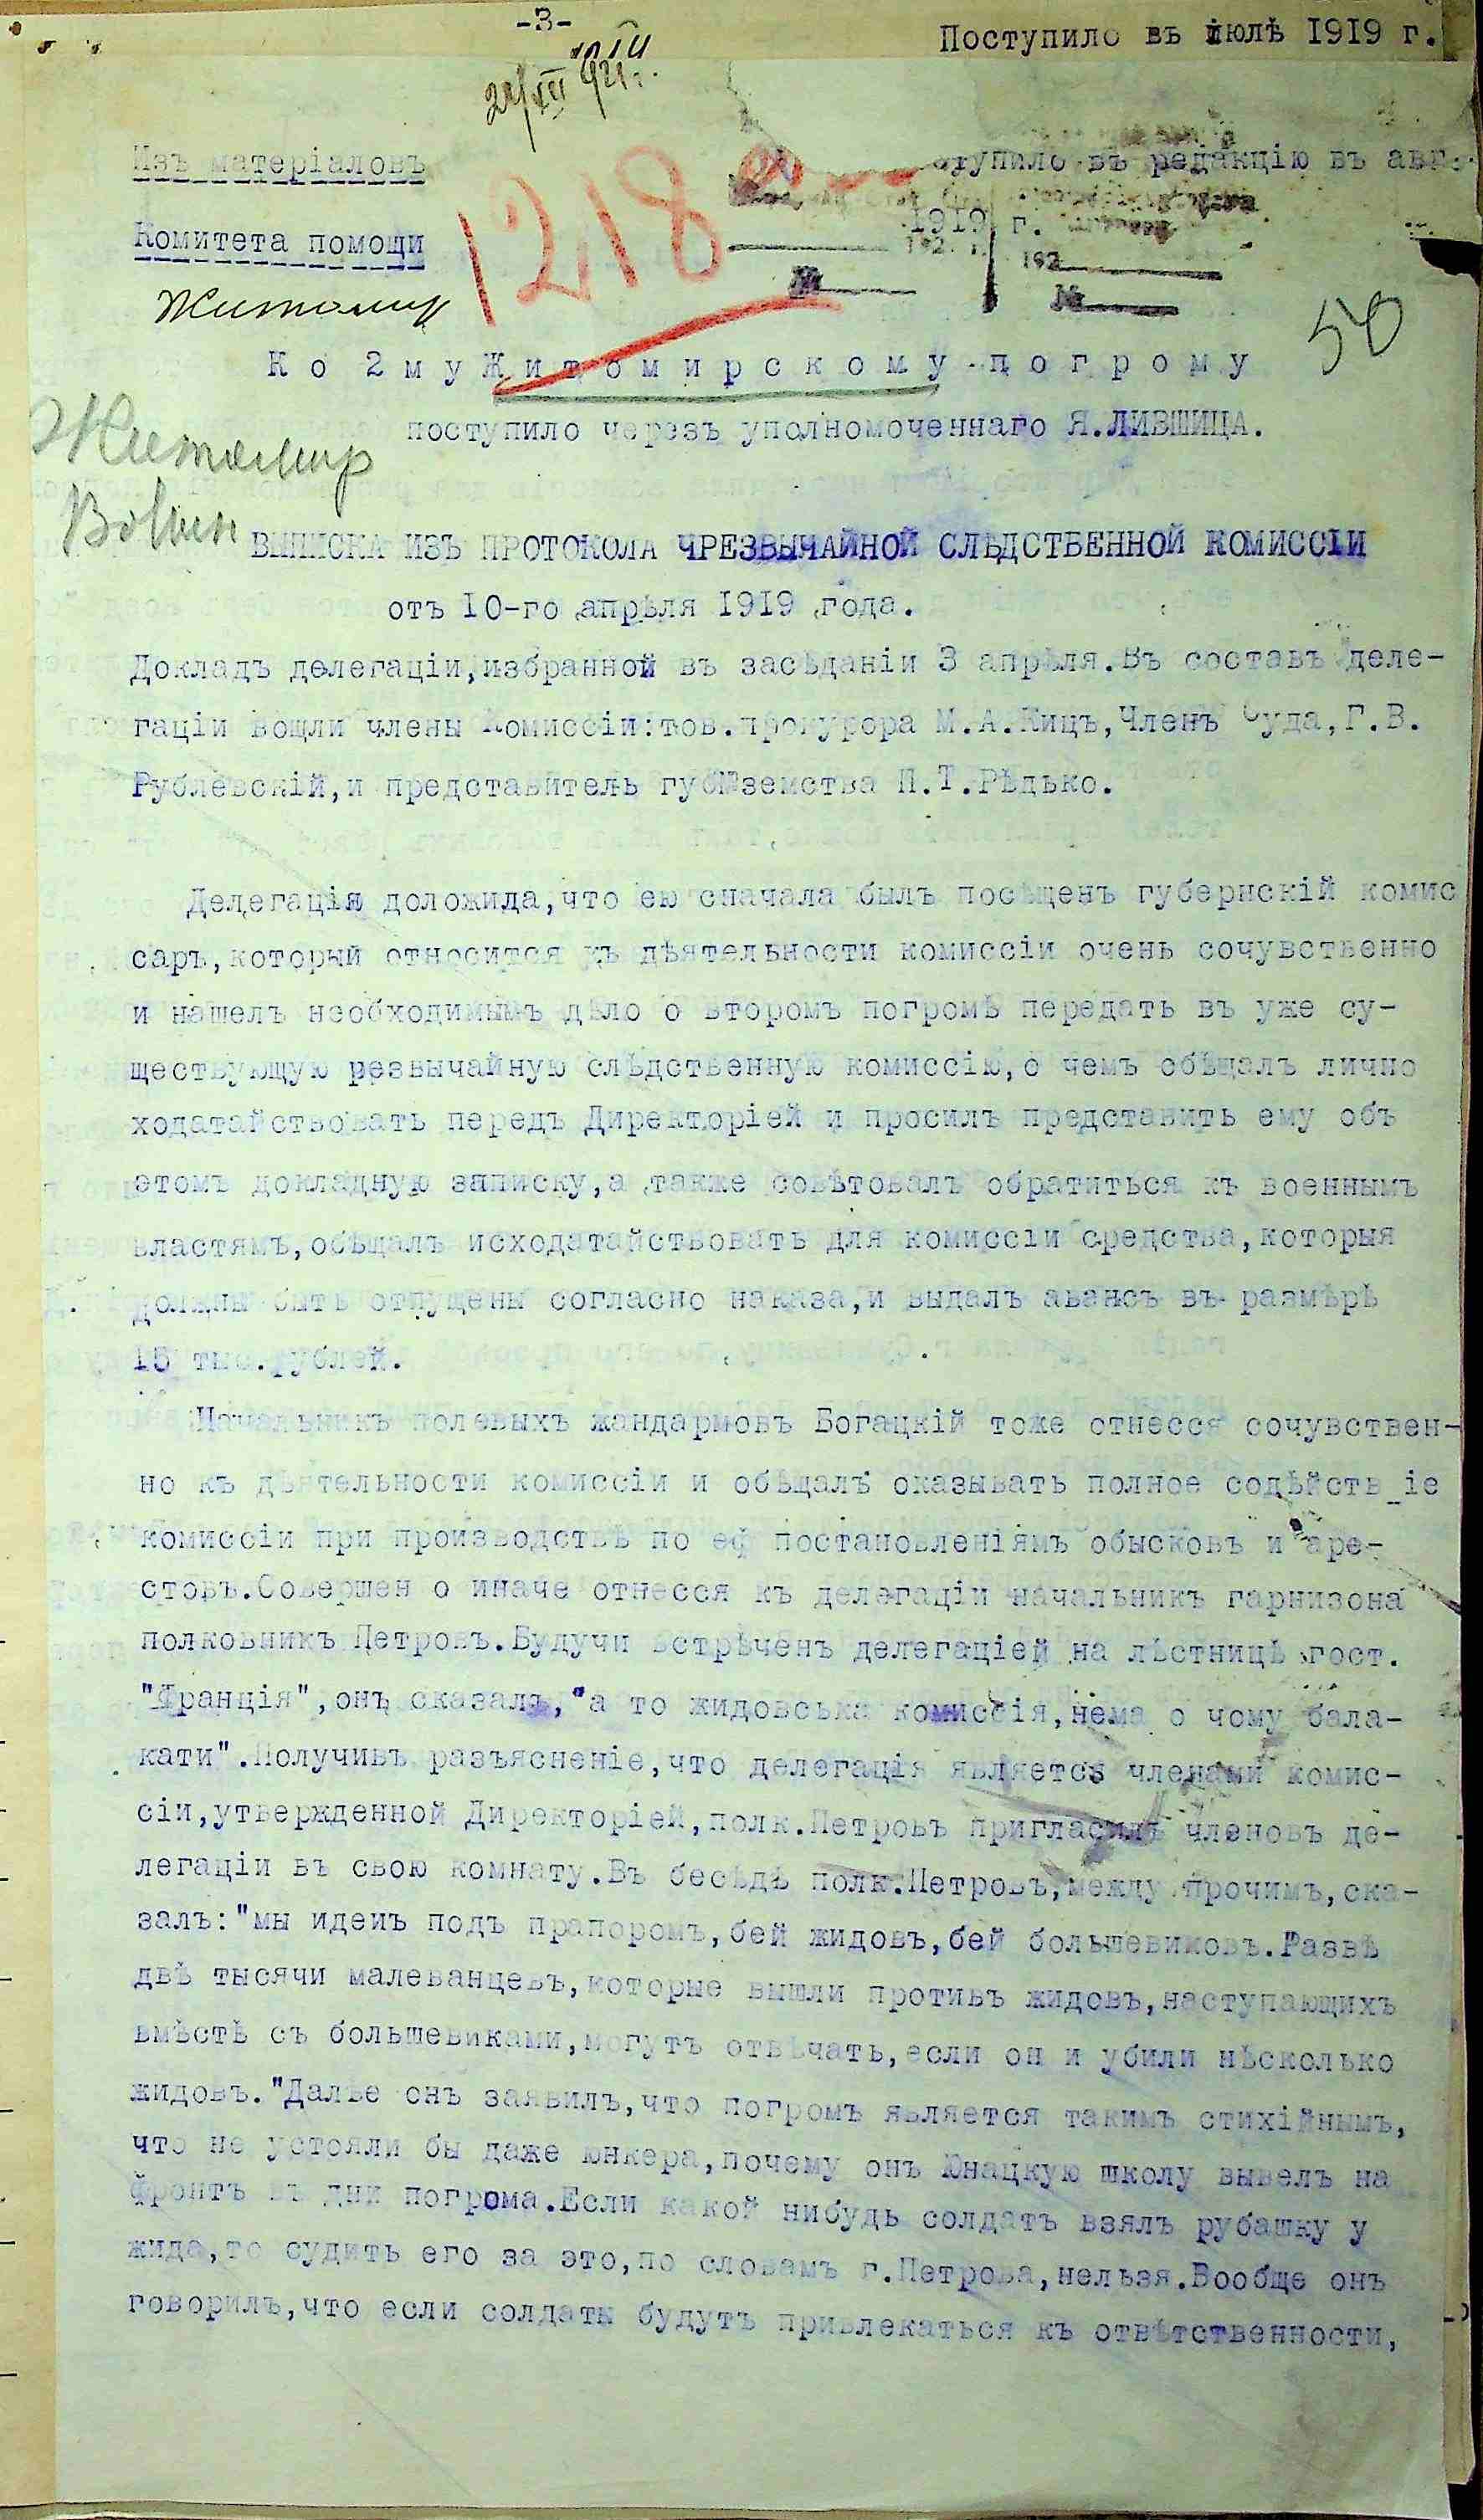 -3-
Поступило въ июлѣ 1919 г.
Изъ матеріаловъ
ступило въ редакцію въ авг.
1218
Комитета помощи
1919 г.
192
192
№
№
Житомир
50
Ко 2му Житомирскому погрому
поступило черезъ уполномоченнаго Я.ЛИВШИЦА.
Житомир
Волин
ВЫПИСКА ИЗЪ ПРОТОКОЛА ЧРЕЗВЫЧАЙНОЙ СЛѢДСТВЕННОЙ КОМИССІИ
отъ 10-го апрѣля 1919 года.
Докладъ делегаціи,избранной въ засѣданіи 3 апрѣля.Въ составъ деле-
гаціи вошли члены Комиссіи:тов.прокурора М.А.Кицъ,Членъ Суда,Г.В.
Рублевскій,и представитель губ земства П.Т.Рѣдько.
Делегація доложида,что ею сначала былъ посѣщенъ губернскій комис
саръ,который относится къ дѣятельности комиссіи очень сочувственно
и нашелъ необходимымъ дѣло о второмъ погромѣ передать въ уже су-
ществующую резвычайную слѣдственную комиссію,о чемъ обѣщалъ лично
ходатайствовать передъ Директоріей и просилъ представить ему объ
этомъ докладную записку,а также совѣтовалъ обратиться къ военнымъ
властямъ,обѣщалъ исходатайствовать для комиссіи средства,которыя
должны быть отпущены согласно наказа,и выдалъ авансъ въ размѣрѣ
15 тыс.рублей.
Начальникъ полевыхъ жандармовъ Богацкій тоже отнесся сочувствен-
но къ дѣятельности комиссіи и обѣщалъ оказывать полное содѣйств_іе
комиссіи при производствѣ по еф постановленіямъ обысковъ и аре-
стовъ.Совершен о иначе отнесся къ делегаціи начальникъ гарнизона
полковникъ Петровъ.Будучи встрѣченъ делегаціей на лѣстницѣ гост.
"Франція",онъ сказалъ,"а то жидовська комиссія,нема о чому бала-
кати".Получивъ разъясненіе,что делегація является членами комис-
сіи,утвержденной Директоріей,полк.Петровъ пригласилъ членовъ де-
легаціи въ свою комнату.Въ бесѣдѣ полк.Петровъ,между прочимъ,ска-
залъ:"мы идеиъ подъ прапоромъ,бей жидовъ,бей большевиковъ.Развѣ
двѣ тысячи малеванцевъ,которые вышли противъ жидовъ,наступающихъ
вмѣстѣ съ большевиками,могутъ отвѣчать,если он и убили нѣсколько
жидовъ."Далѣе онъ заявилъ,что погромъ является такимъ стихійнымъ,
что не устояли бы даже юнкера,почему онъ Юнацкую школу вывелъ на
фронтъ въ дни погрома.Если какой нибудь солдатъ взялъ рубашку у
жида,то судить его за это,по словамъ г.Петрова,нельзя.Вообще онъ
говорилъ,что если солдаты будутъ привлекаться къ отвѣтственности,